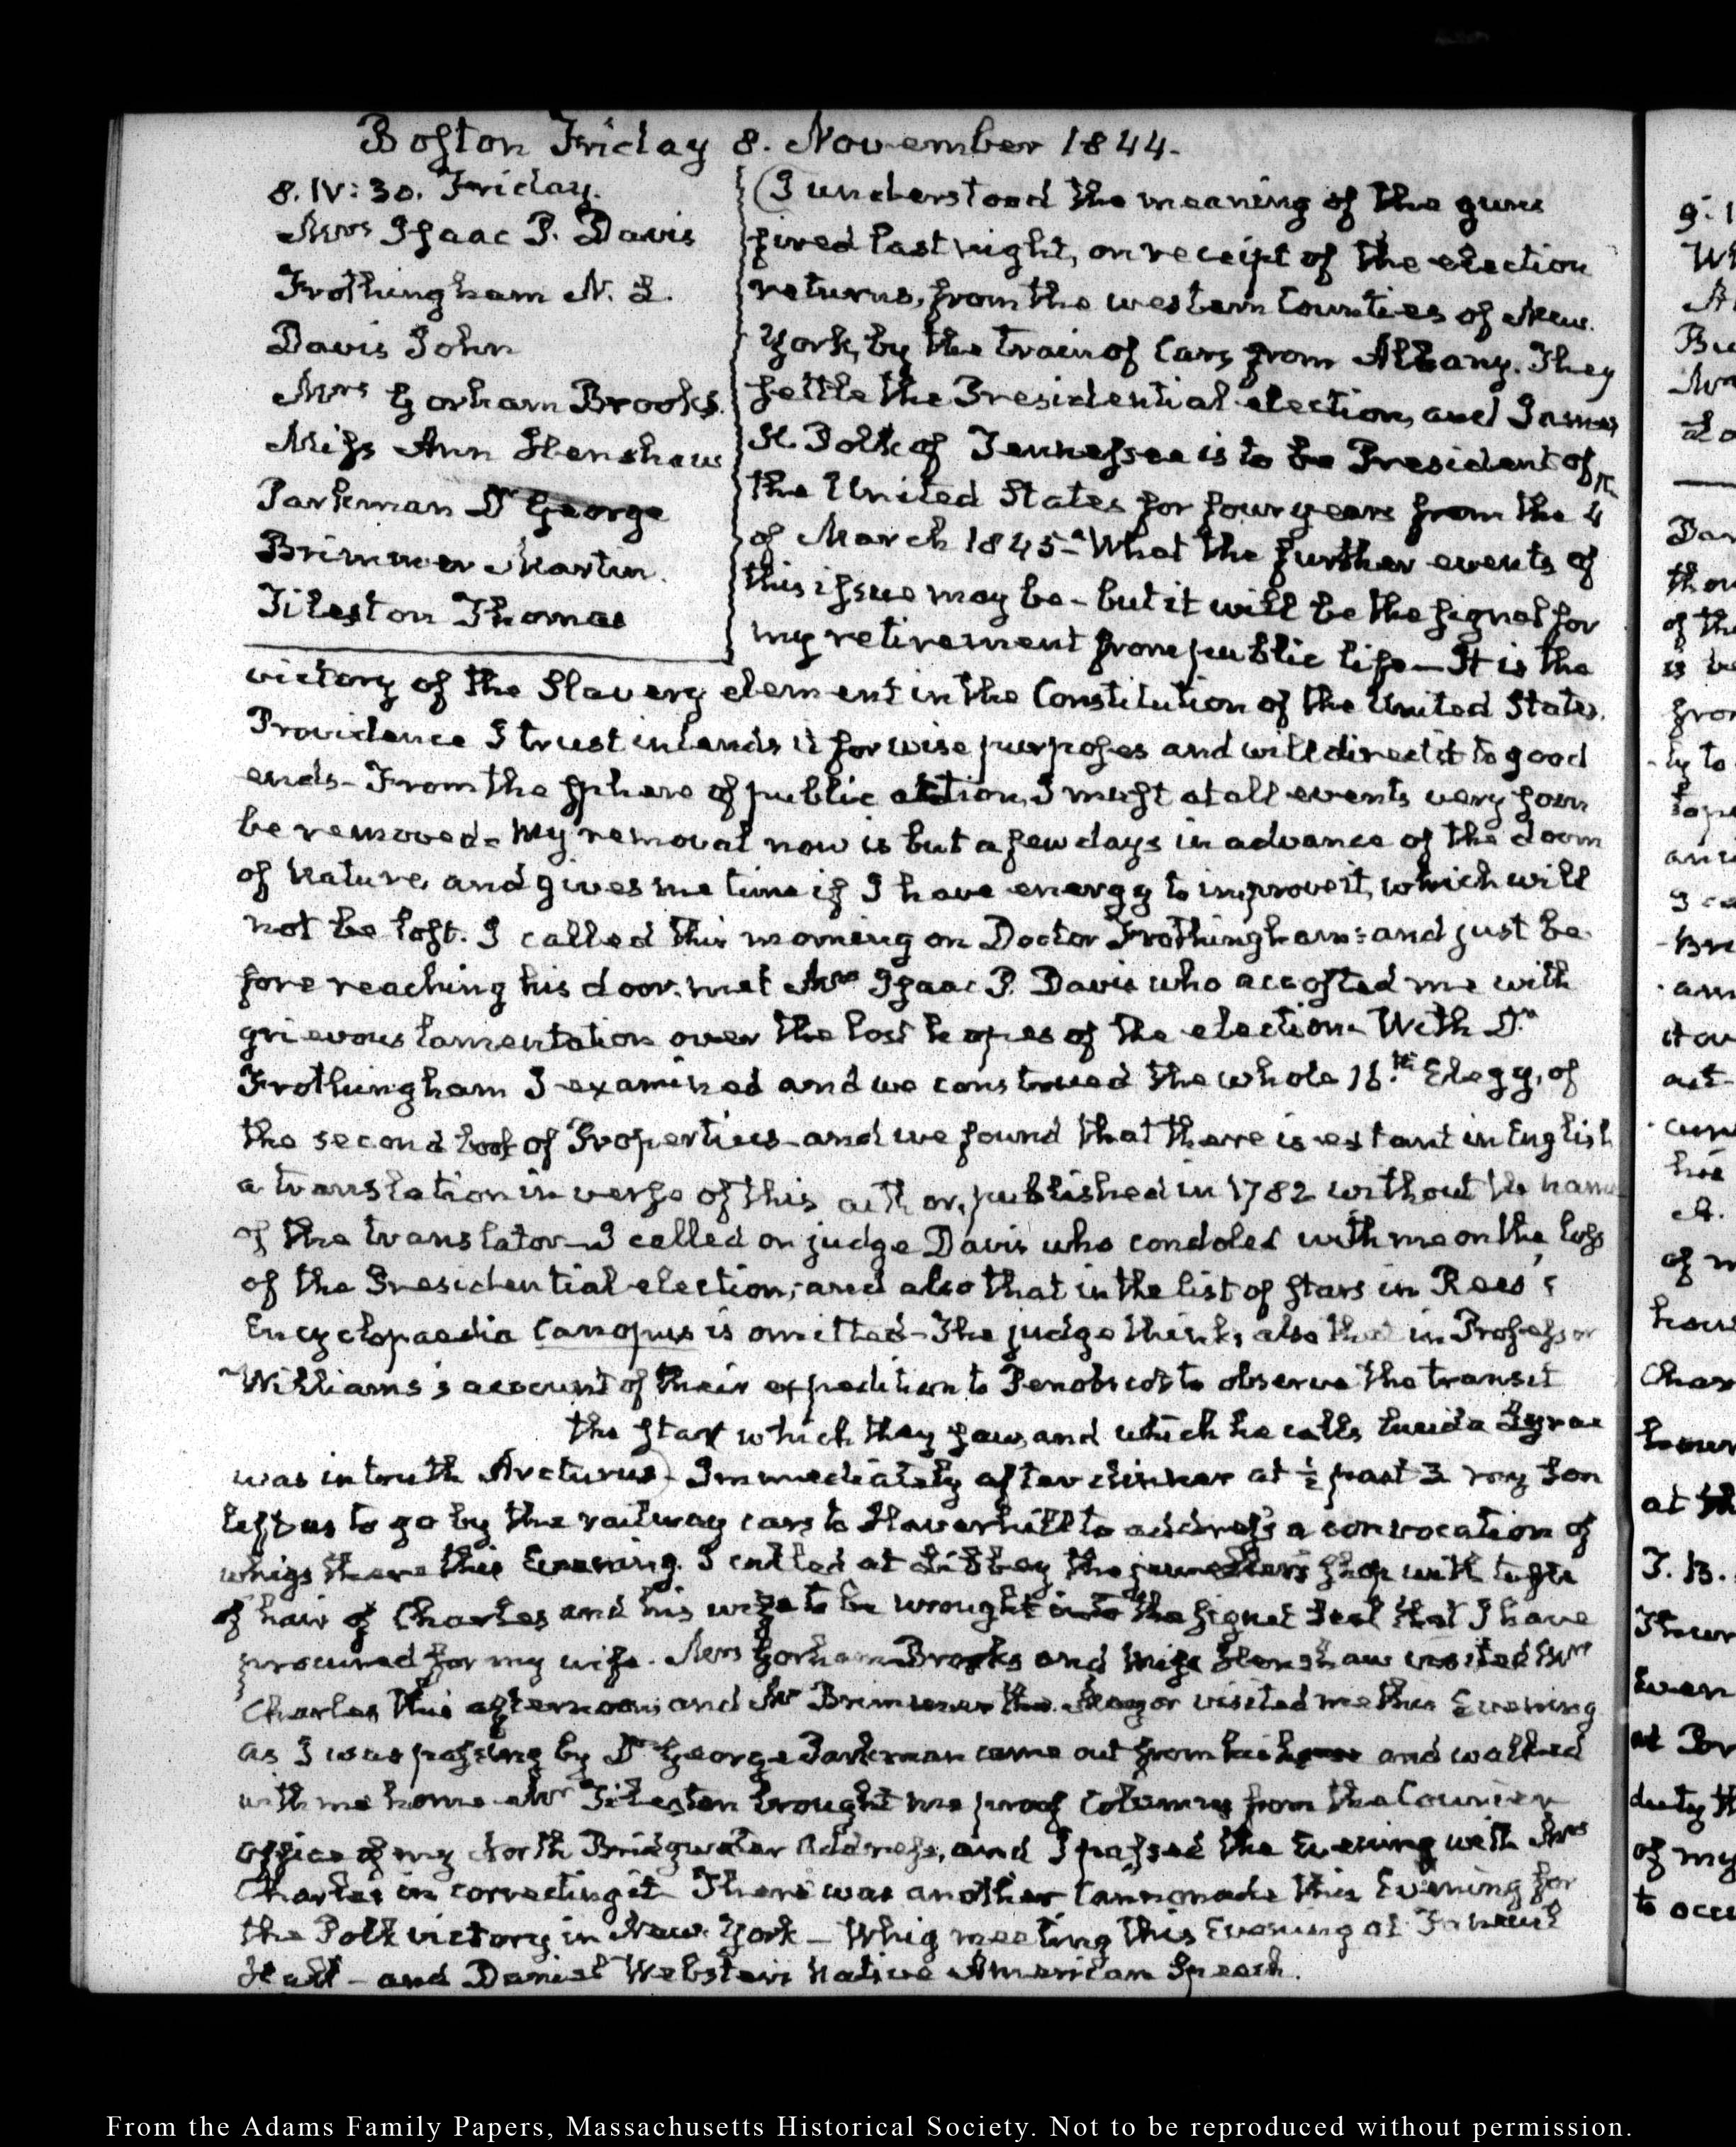 Boston Friday 8. November 1844.
8. IV:30. Friday.
Mrs Isaac P. Davis
Frothingham N. L.
Davis John
Mrs Gorham Brooks.
Miss Ann Henshaw
Parkman Dr George
Brimmer Martin.
Tileston Thomas
(I understood the meaning of the guns
fired last night, on receipt of the election
returns, from the western Counties of New
York, by the train of Cars from Albany. They
settle the Presidential election, and James
K. Polk of Tennessee is to be President of
the United States for four years from the 4th
of March 1845 - What the further events of
this issue may be - but it will be the signal for
my retirement from public life — It is the
victory of the Slavery element in the Constitution of the United States.
Providence I trust intends it for wise purposes and will direct it to good
ends - From the sphere of public action, I must at all events very soon
be removed - My removal now is but a few days in advance of the doom
of Nature, and gives me time if I have energy to improve it, which will
not be lost. I called this morning on Doctor Frothingham: and just be
fore reaching his door, met Mrs Isaac P. Davis who accosted me with
grievous lamentation over the lost hopes of the election - With Dr
Frothingham I examined and we construed the whole 16th Elegy, of
the second book of Propertius - and we found that there is extant in English
a translation in verse of this author, published in 1782 without the name
of the translator - I called on judge Davis who condoled with me on the loss
of the Presidential election; and also that in the list of stars in Rees's
Encyclopaedia Canopus is omitted - The judge thinks also that in Professor
Williams's account of their expedition to Penobscot to observe the transit
the star which they saw, and which he calls lucida Lyrae
was in truth Arcturus) - Immediately after dinner at ½ past 3 my Son
left us to go by the railway cars to Haverhill to address a convocation of
whigs there this Evening. I called at Libbey the jeweller's shop with tufts
of hair of Charles and his wife to be wrought into the signet Seal that I have
procured for my wife. Mrs Gorham Brooks and Miss Henshaw visited Mrs
Charles this afternoon; and Mr Brimmer the Mayor visited me this Evening
as I was passing by Dr George Parkman came out from his house and walked
with me home - Mr Tileston brought me proof Columns from the Courier
office of my North Bridgwater Address, and I passed the Evening with Mrs
Charles in correcting it - There was another Cannonade this Evening for
the Polk victory in New York - Whig meeting this Evening at Faneuil
Hall - and Daniel Webster's Native American Speech.
From the Adams Family Papers, Massachusetts Historical Society. Not to be reproduced without permission.